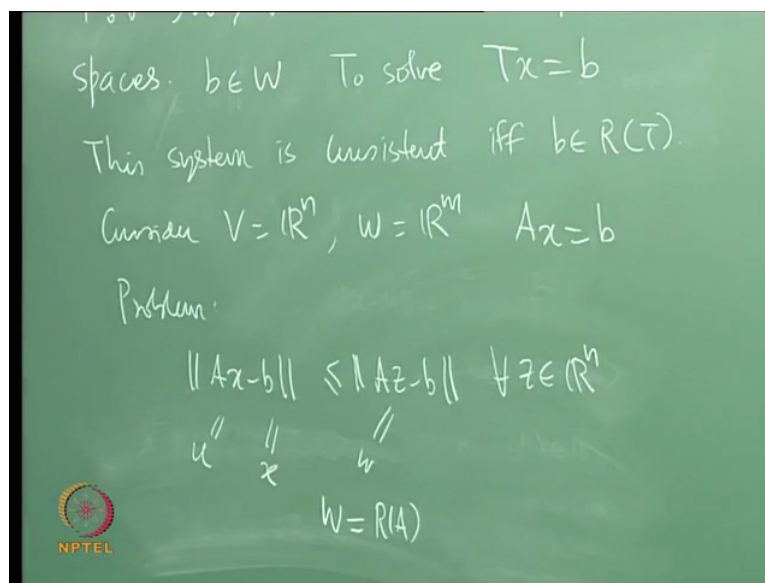 spaces. b ∈ W To solve Tx = b
This system is consistent iff b ∈ R(T).
Consider V = ℝⁿ, W = ℝᵐ Ax = b
Problem:
||Ax-b|| ≤ ||Az-b|| ∀ z ∈ ℝⁿ
u x w
W = R(A)
NPTEL